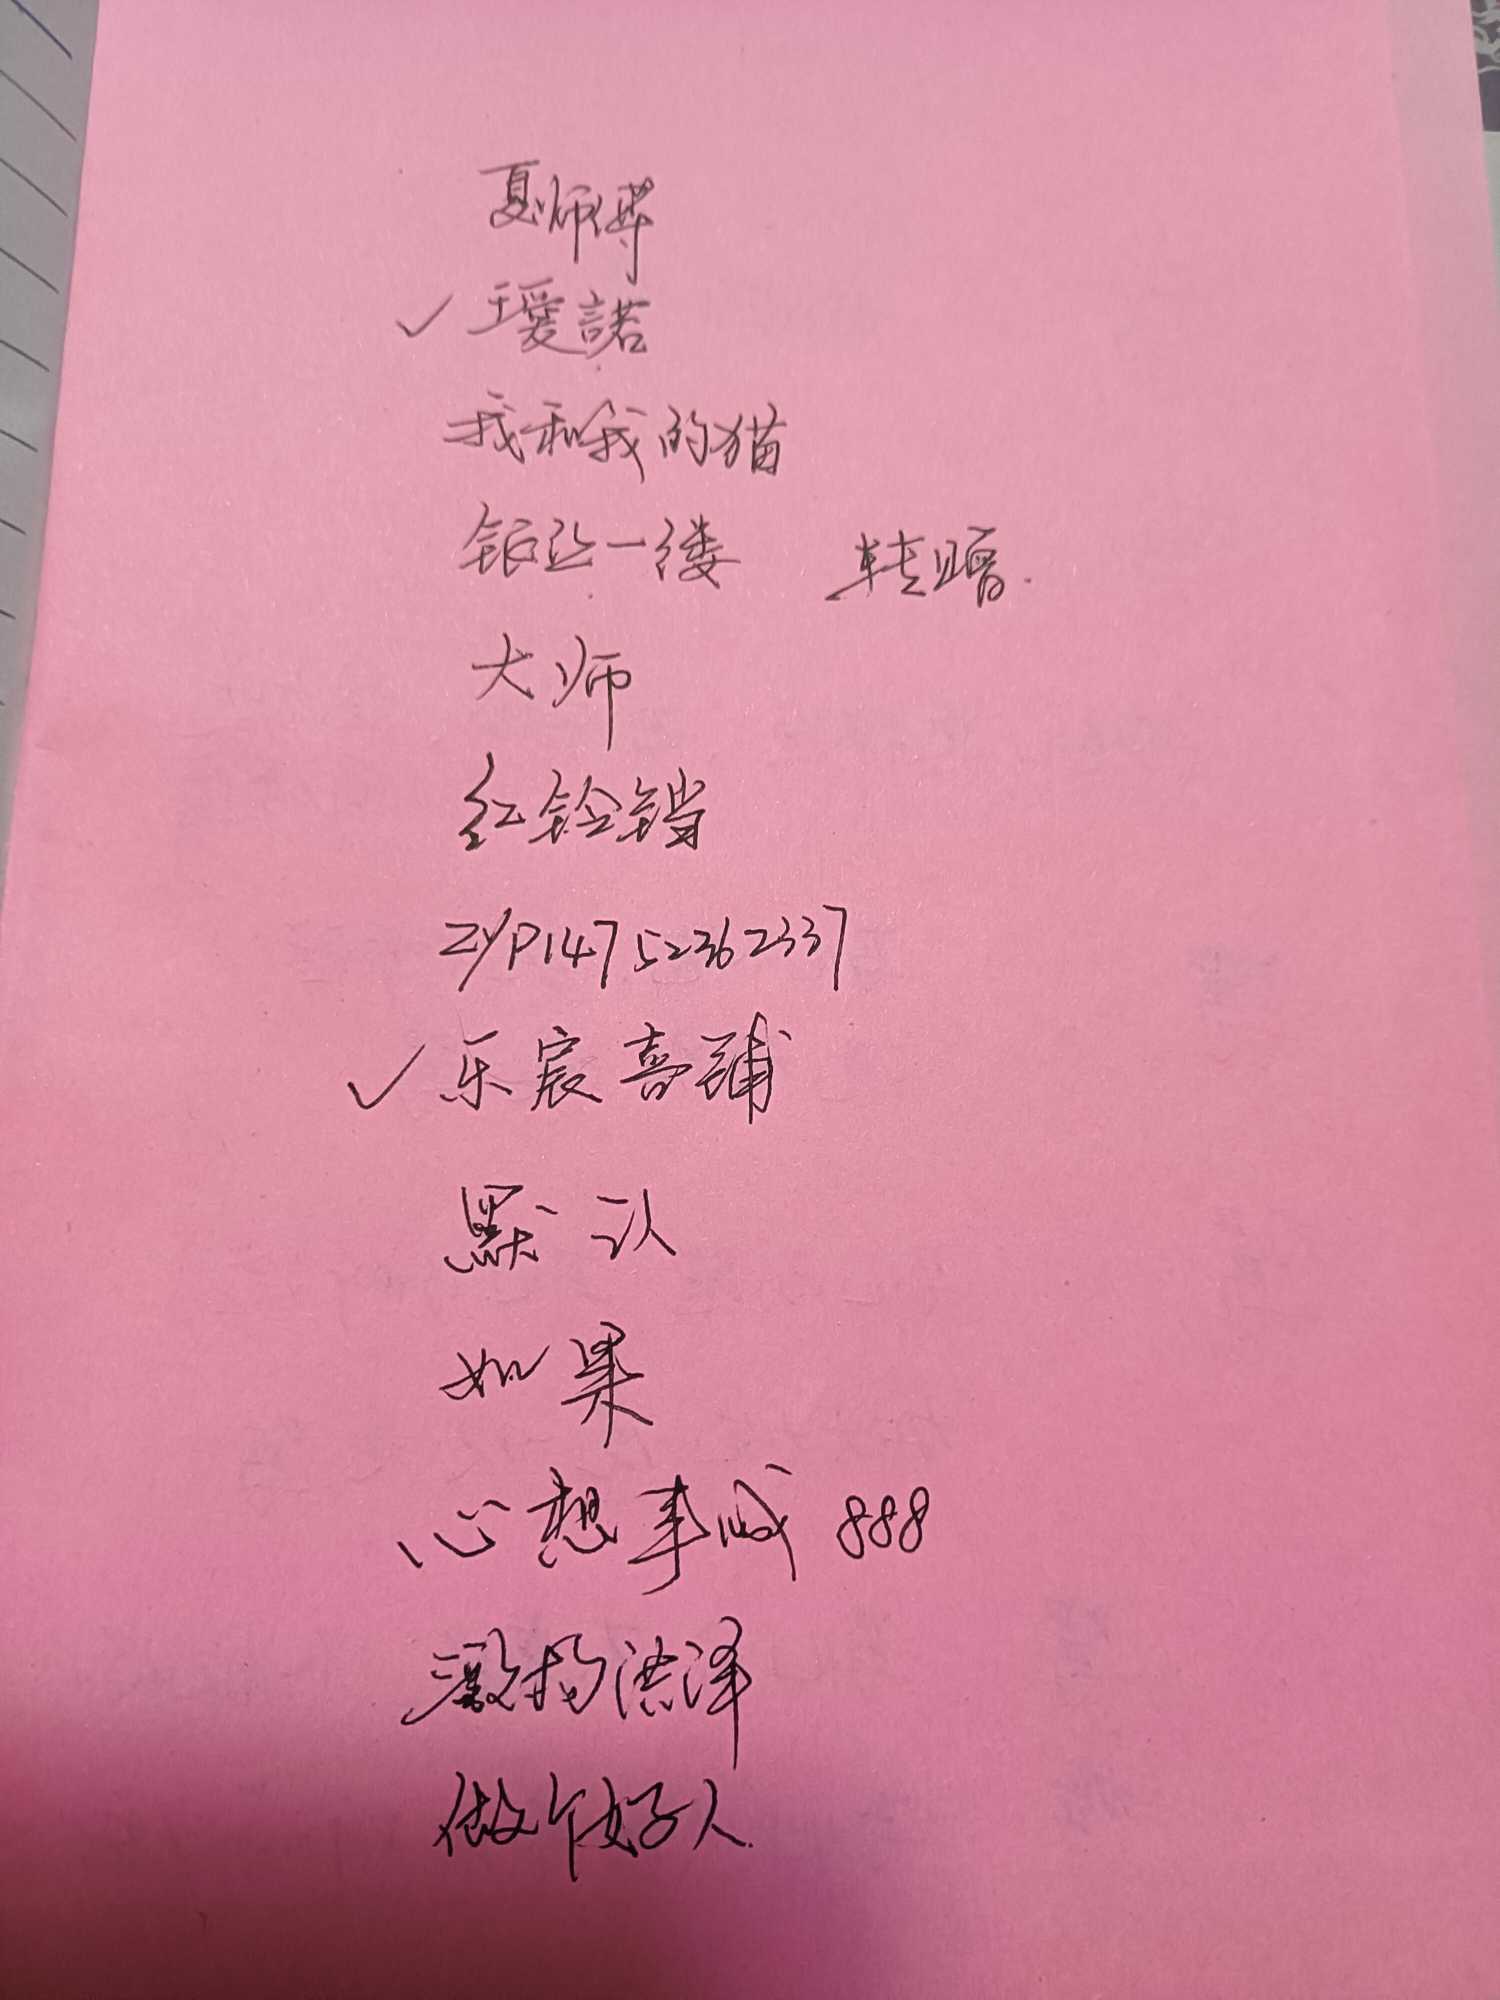 夏师傅
✓ 瑷諾
我和我的猫
铅云一缕 转赠.
大师
红铃铛
ZYP14752362337
✓ 乐宸喜铺
默认
如果
心想事成 888
激扬浩泽
做个好人